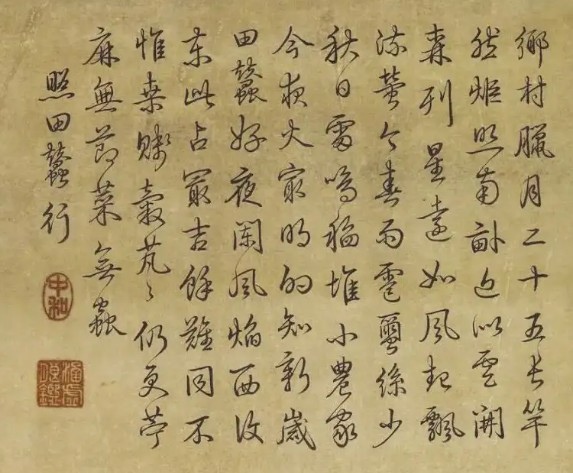 鄉村臘月二十五長竿
然炬照南畝近似雲開
森列星遠如風起飄
流螢今春雨雹繭絲少
秋日雷鳴稻堆小農家
今夜火最明的知新歲
田蠶好夜闌風焰西復
東此占最吉餘難同不
惟桑賤穀芃〻仍更苧
麻無節菜無蟲
照田蠶行
中和